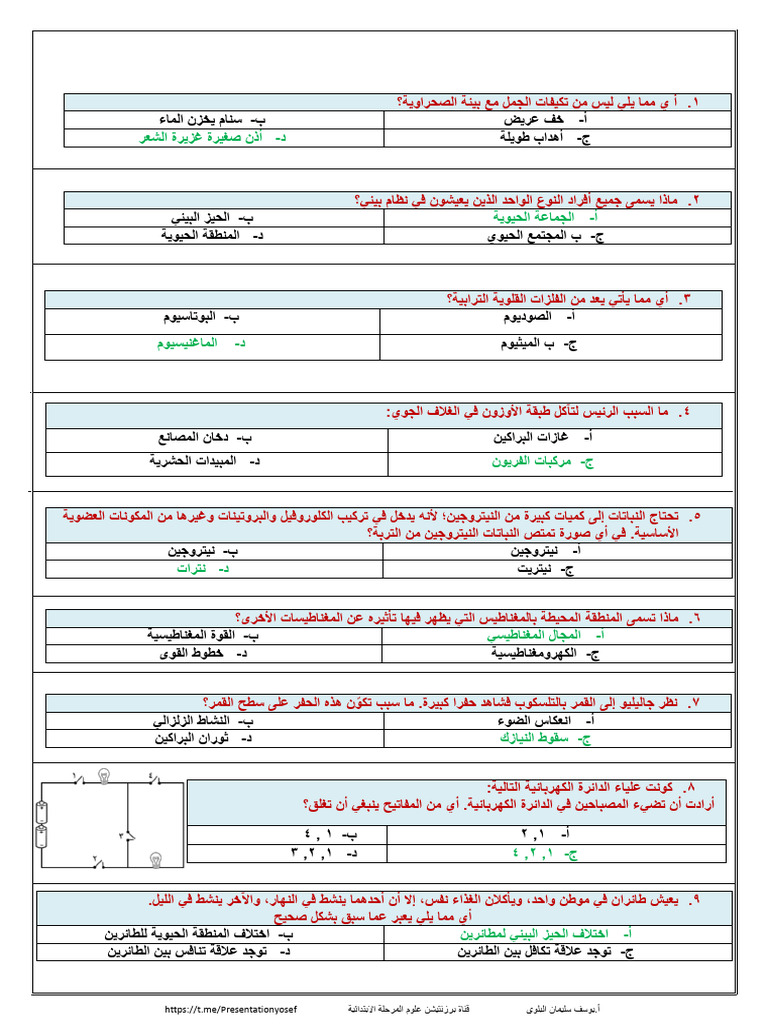 ١. أ ي مما يلي ليس من تكيفات الجمل مع بيئة الصحراوية؟
أ- خف عريض ب- سنام يخزن الماء
ج- أهداب طويلة د- أذن صغيرة غزيرة الشعر
٢. ماذا يسمى جميع أفراد النوع الواحد الذين يعيشون في نظام بيئي؟
أ- الجماعة الحيوية ب- الحيز البيئي
ج- ب المجتمع الحيوي د- المنطقة الحيوية
٣. أي مما يأتي يعد من الفلزات القلوية الترابية؟
أ- الصوديوم ب- البوتاسيوم
ج- ب الميثيوم د- الماغنيسيوم
٤. ما السبب الرئيس لتآكل طبقة الأوزون في الغلاف الجوي:
أ- غازات البراكين ب- دخان المصانع
ج- مركبات الفريون د- المبيدات الحشرية
٥. تحتاج النباتات إلى كميات كبيرة من النيتروجين؛ لأنه يدخل في تركيب الكلوروفيل والبروتينات وغيرها من المكونات العضوية
الأساسية. في أي صورة تمتص النباتات النيتروجين من التربة؟
أ- نيتروجين ب- نيتروجين
ج- نيتريت د- نترات
٦. ماذا تسمى المنطقة المحيطة بالمغناطيس التي يظهر فيها تأثيره عن المغناطيسات الأخرى؟
أ- المجال المغناطيسي ب- القوة المغناطيسية
ج- الكهرومغناطيسية د- خطوط القوى
٧. نظر جاليليو إلى القمر بالتلسكوب فشاهد حفرا كبيرة. ما سبب تكوّن هذه الحفر على سطح القمر؟
أ- انعكاس الضوء ب- النشاط الزلزالي
ج- سقوط النيازك د- ثوران البراكين
٨. كونت علياء الدائرة الكهربائية التالية:
أرادت أن تضيء المصباحين في الدائرة الكهربائية. أي من المفاتيح ينبغي أن تغلق؟
أ- ١, ٢ ب- ١, ٤
ج- ١, ٢, ٤ د- ١, ٢, ٣
١ ٤
٣
٢
٩. يعيش طائران في موطن واحد، ويأكلان الغذاء نفس، إلا أن أحدهما ينشط في النهار، والآخر ينشط في الليل.
أي مما يلي يعبر عما سبق بشكل صحيح
أ- اختلاف الحيز البيئي لمطائرين ب- اختلاف المنطقة الحيوية للطائرين
ج- توجد علاقة تكافل بين الطائرين د- توجد علاقة تنافس بين الطائرين
أ.يوسف سليمان البلوي قناة برزنتيشن علوم المرحلة الابتدائية https://t.me/Presentationyosef